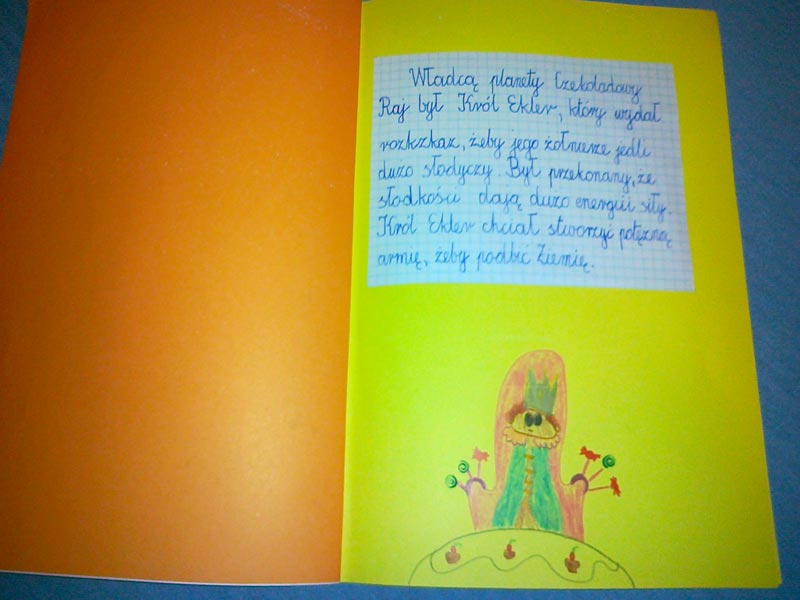 Władcą planety Czekoladowy
Raj był Król Ekler, który wydał
rozkzkaz, żeby jego żołnierze jedli
dużo słodyczy. Był przekonany, że
słodkości dają dużo energii i siły.
Król Ekler chciał stworzyć potężną
armię, żeby podbić Ziemię.